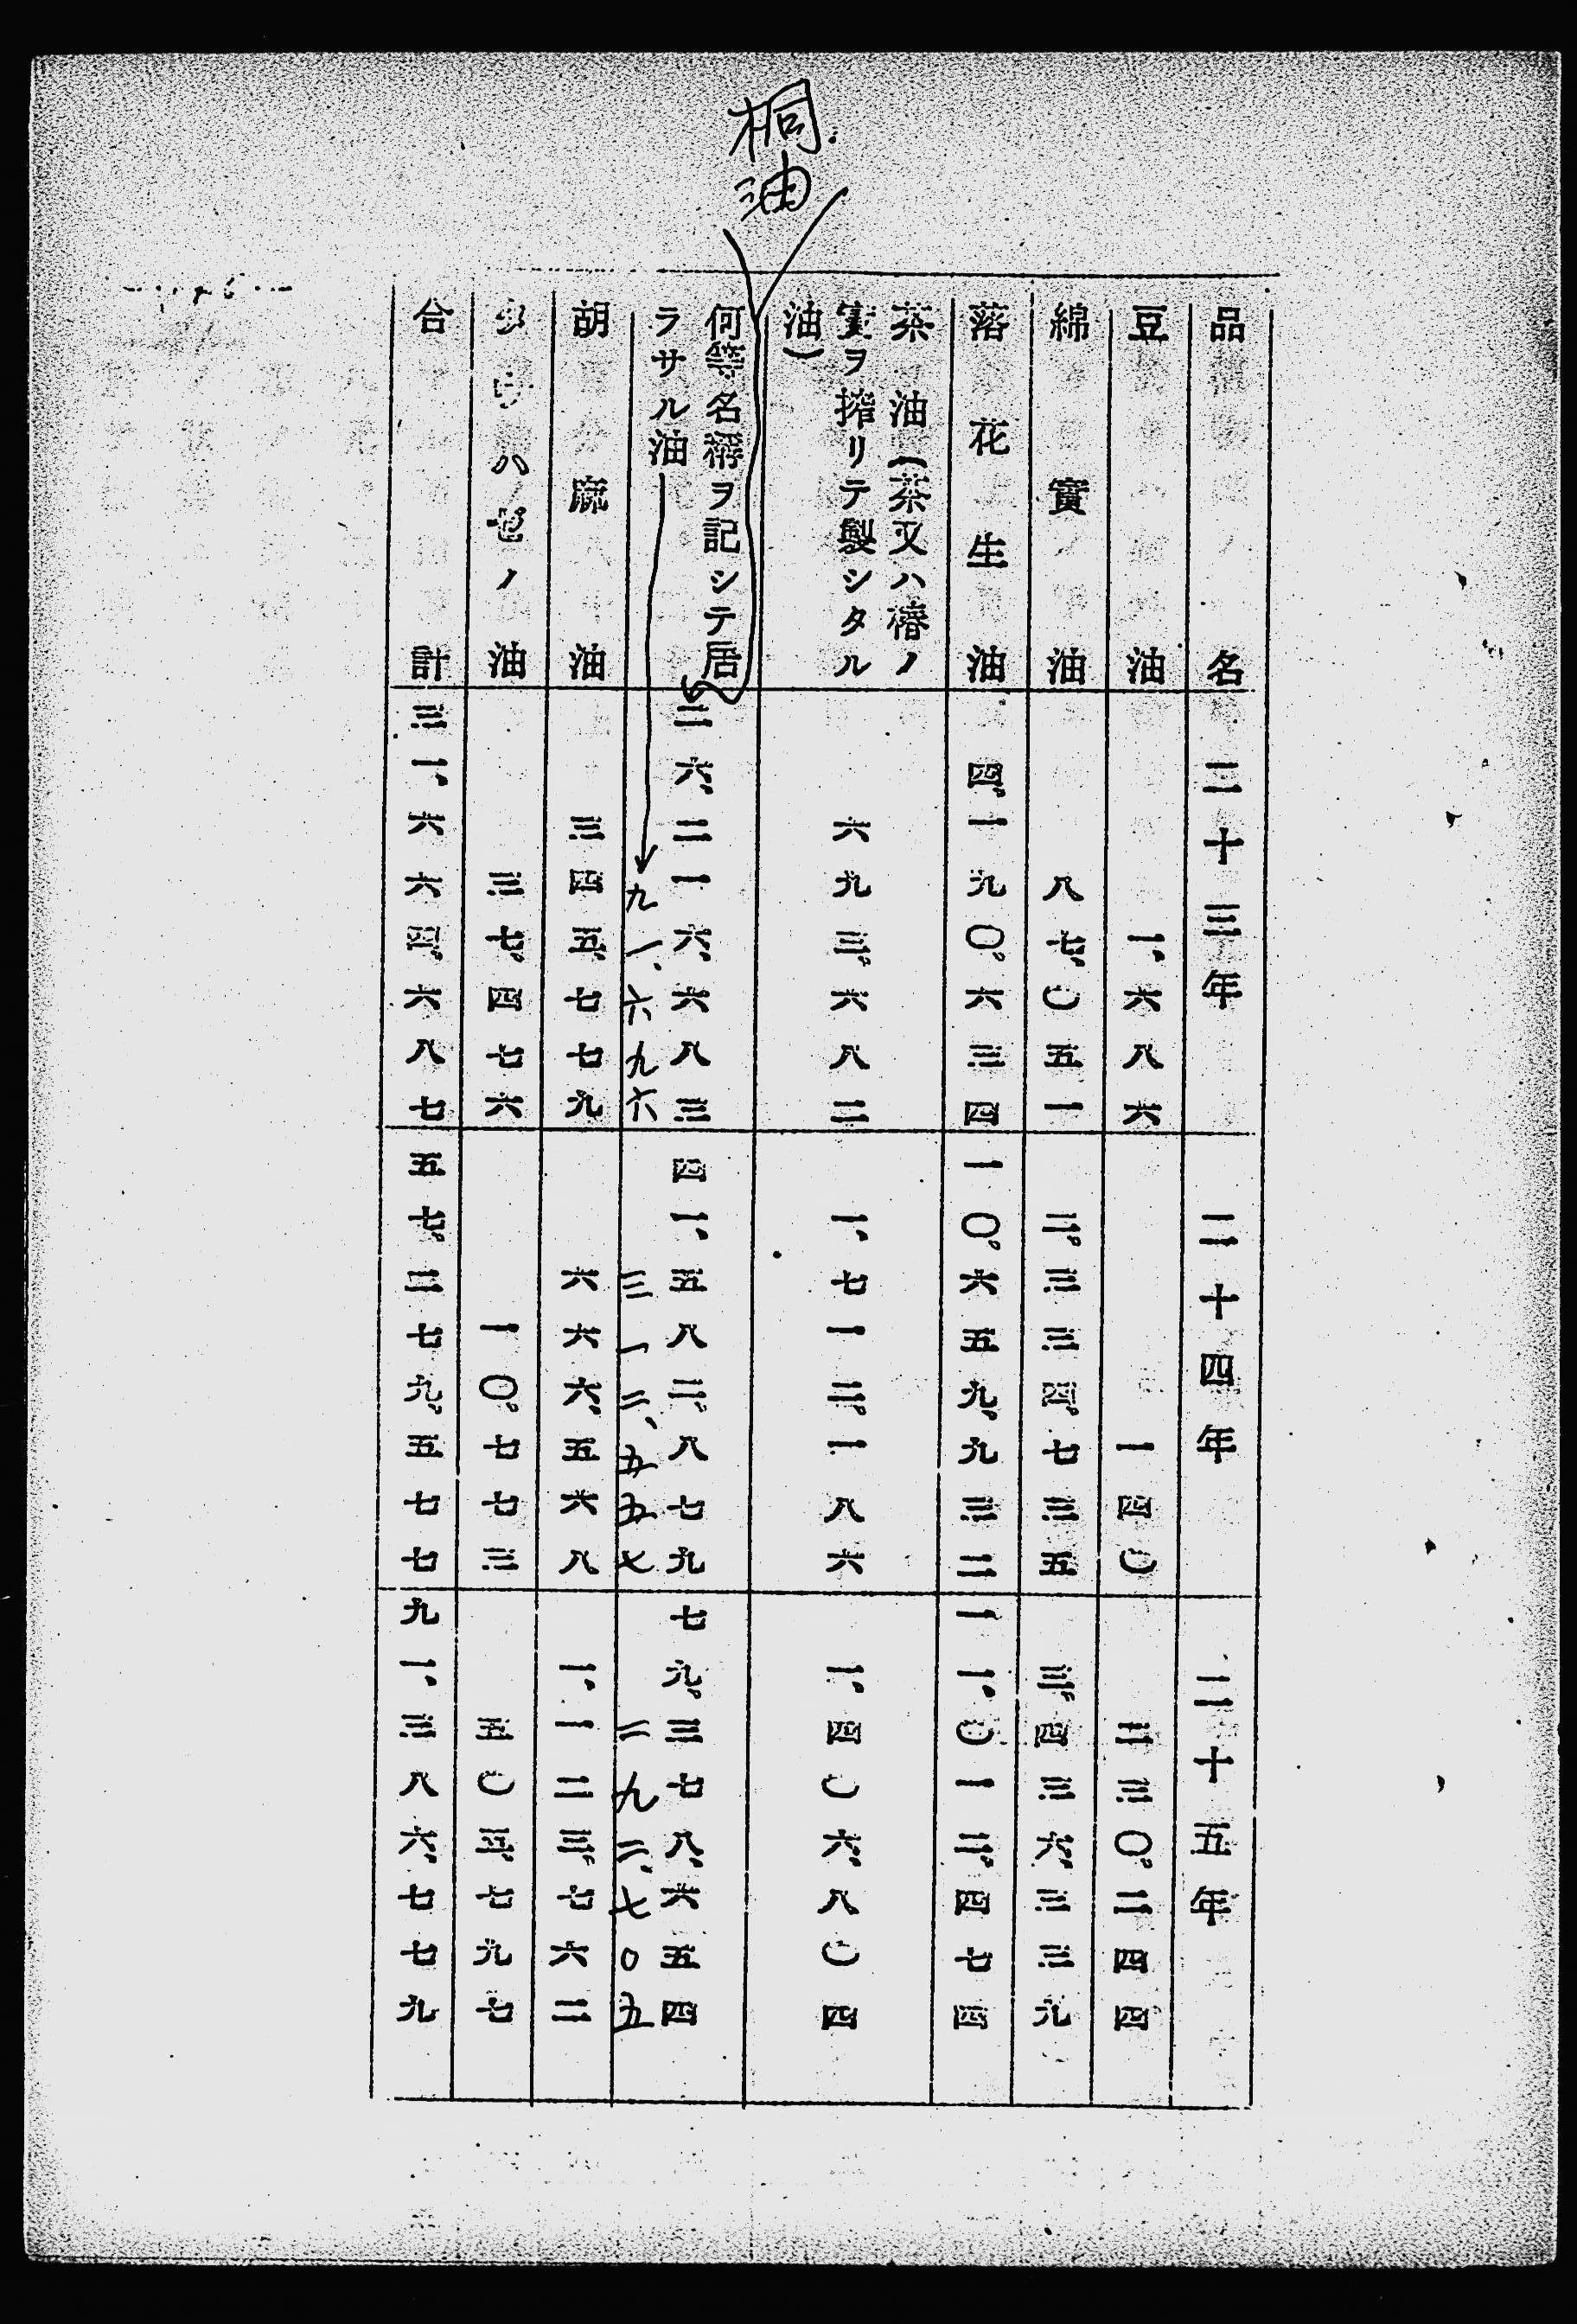 桐油
品名 二十三年 二十四年 二十五年
豆油 一、六八六 一四〇 二三〇、二四四
綿實油 八七、〇五一 二、三三四、七三五 三、四三六、三三九
落花生油 四、一九〇、六三四 一〇、六五九、九三二 一一、〇一二、四七四
茶油(茶又ハ椿ノ
實ヲ搾リテ製シタル
油) 六九三、六八二 一、七一二、一八六 一、四〇六、八〇四
何等名稱ヲ記シテ居 二六、二一六、六八三 四一、五八二、八七九 七九、三七八、六五四
ラサル油 九一、六九六 三一二、五五七 二九二、七〇五
胡麻油 三四五、七七九 六六六、五六八 一、一二三、七六二
ハゼノ油 三七、四七六 一〇、七七三 五〇三、七九七
合計 三一、六六四、六八七 五七、二七九、五七七 九一、三八六、七七九